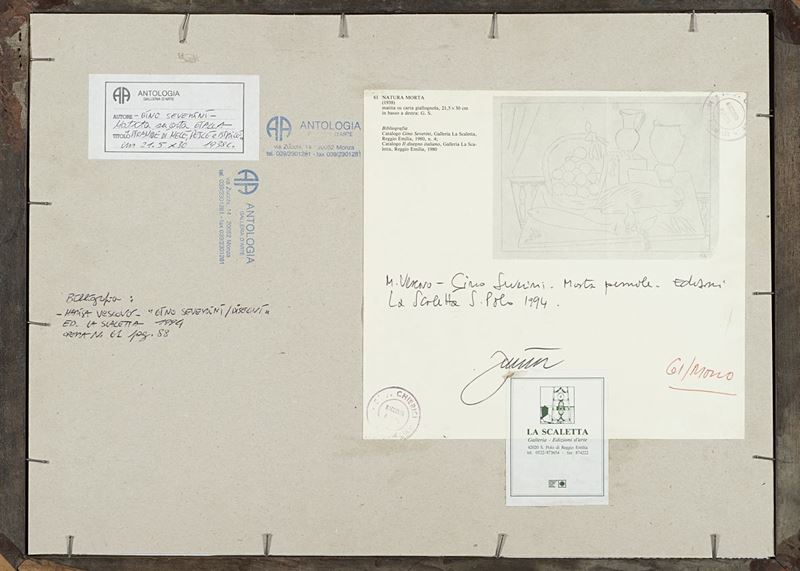 AA ANTOLOGIA
GALLERIA D'ARTE
AUTORE - GINO SEVERINI -
Matita su carta GIALLA
TITOLO
cm 21.5 x 30 1938c.
AA ANTOLOGIA
D'ARTE
via Zucchi, 14 - 20052 Monza
tel. 039/2301281 - fax 039/2301281
AA ANTOLOGIA
GALLERIA D'ARTE
via Zucchi, 14 - 20052 Monza
tel. 039/2301281 - fax 039/2301281
61 NATURA MORTA
(1938)
matita su carta giallognola, 21,5 × 30 cm
in basso a destra: G. S.
Bibliografia:
Catalogo Gino Severini, Galleria La Scaletta,
Reggio Emilia, 1980, n. 4;
Catalogo Il disegno italiano, Galleria La Sca-
letta, Reggio Emilia, 1980
Gino Severini. Edizioni
La Scaletta S. Polo 1994.
61/Mono
Bibliografia :
"GINO SEVERINI / DISEGNI"
ED. LA SCALETTA 1994
61 pag. 88
CHIERICI
LA SCALETTA
Galleria - Edizioni d'arte
42020 S. Polo di Reggio Emilia
tel. 0522-873654 - fax 874222